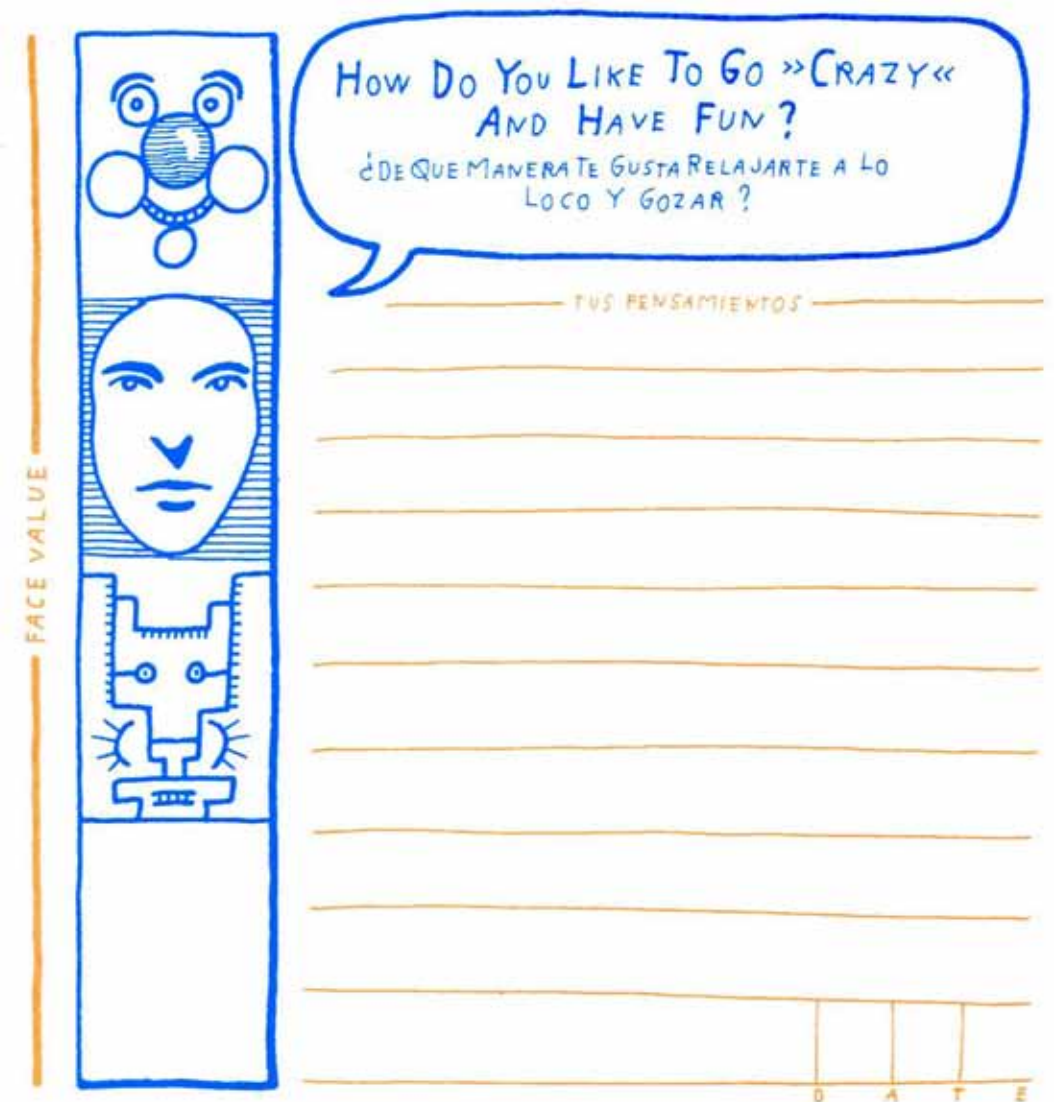 HOW DO YOU LIKE TO GO »CRAZY«
AND HAVE FUN?
¿DE QUE MANERA TE GUSTA RELAJARTE A LO
LOCO Y GOZAR?
TUS PENSAMIENTOS
FACE VALUE
DATE